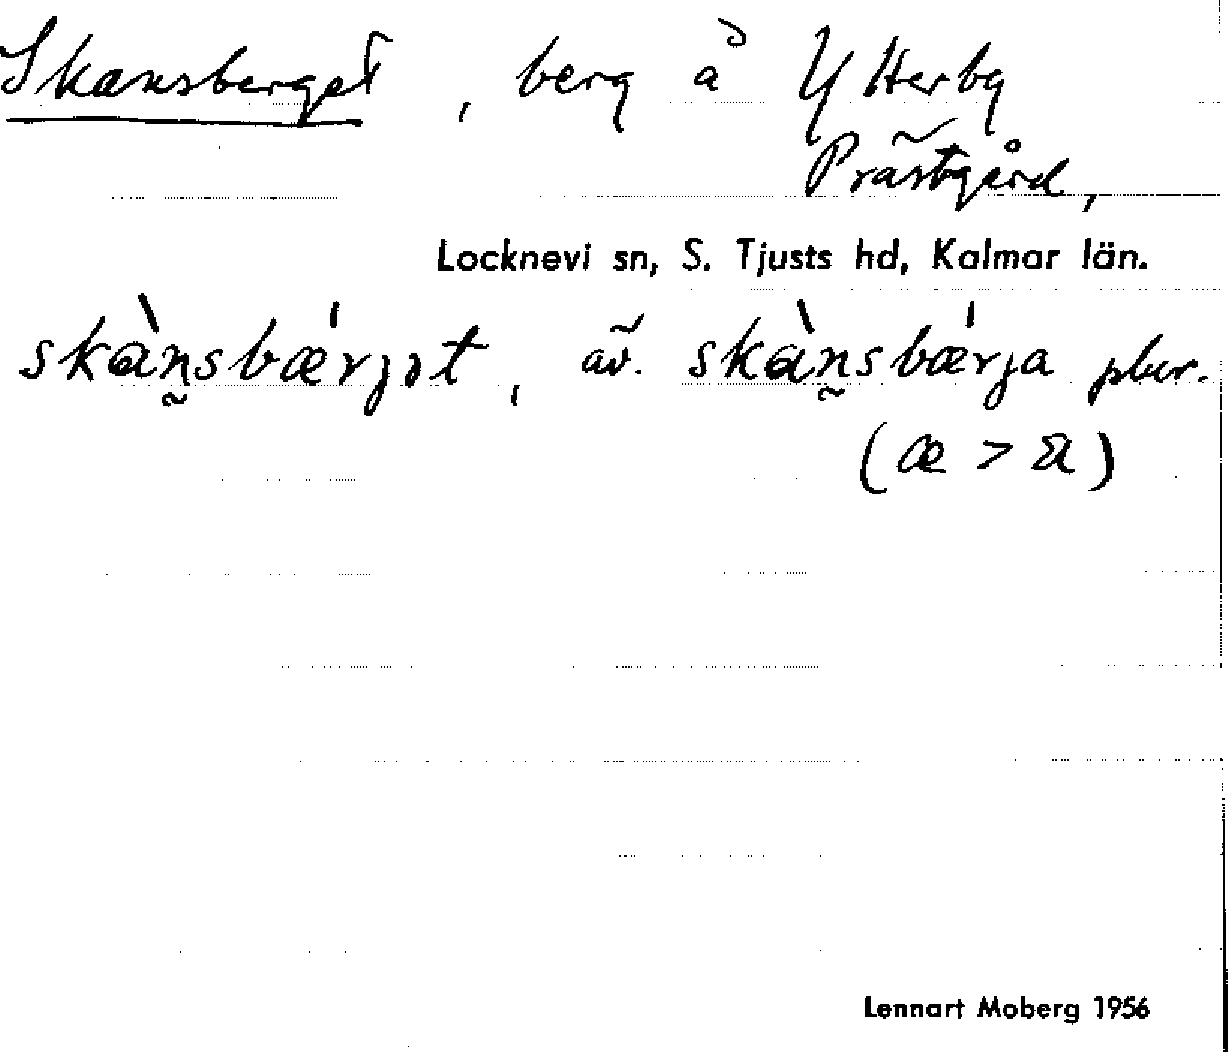 Skansberget, berg å Ytterby
Prästgård,
Locknevi sn, S. Tjusts hd, Kalmar län.
skàn̰sbæ̍rjət, äv. skàn̰sbæ̍rja plur.
(æ > a)
Lennart Moberg 1956